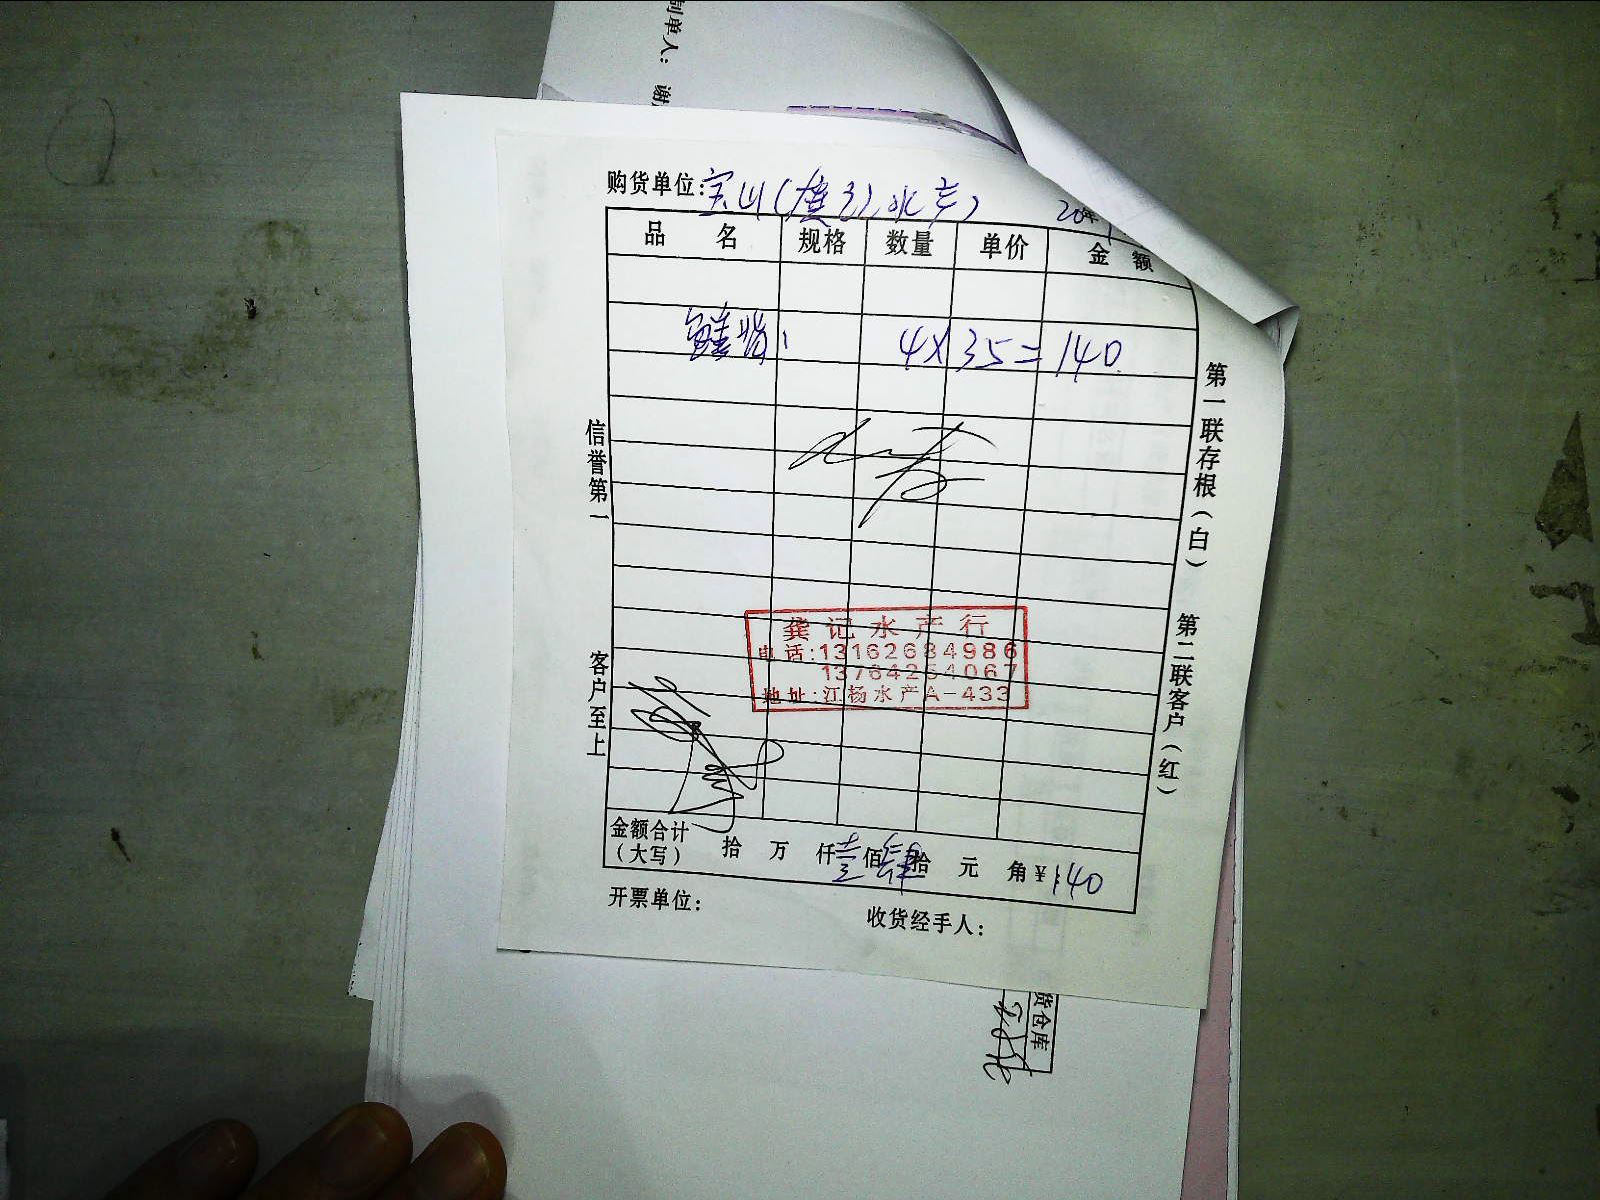 制单人： 谢
购货单位：宝山(唐弓)水产) 20年
品 名 规格 数量 单价 金 额
鳝背 4×35=140
第一联存根（白） 第二联客户（红）
信誉第一 客户至上
龚记水产行
电话:13162684986
13764254067
地址:江杨水产A-433
金额合计（大写） 拾 万 仟壹佰肆拾 元 角¥140
开票单位： 收货经手人：
货仓库